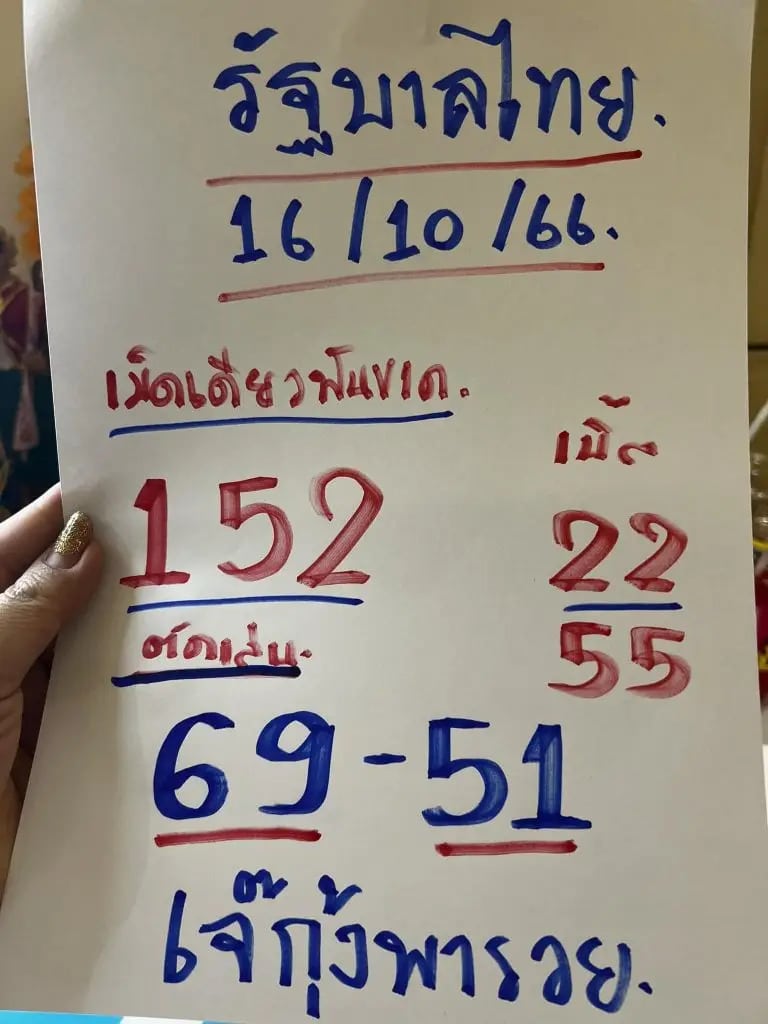 รัฐบาลไทย.
16/10/66.
เม็ดเดียวฟันขาด.
152
เบิ้ล
22
55
ตัดเล่น.
69-51
เจ๊กุ้งพารวย.